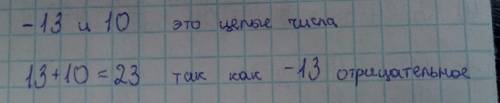 -13 и 10 это целые числа
13+10=23 так как -13 отрицательное